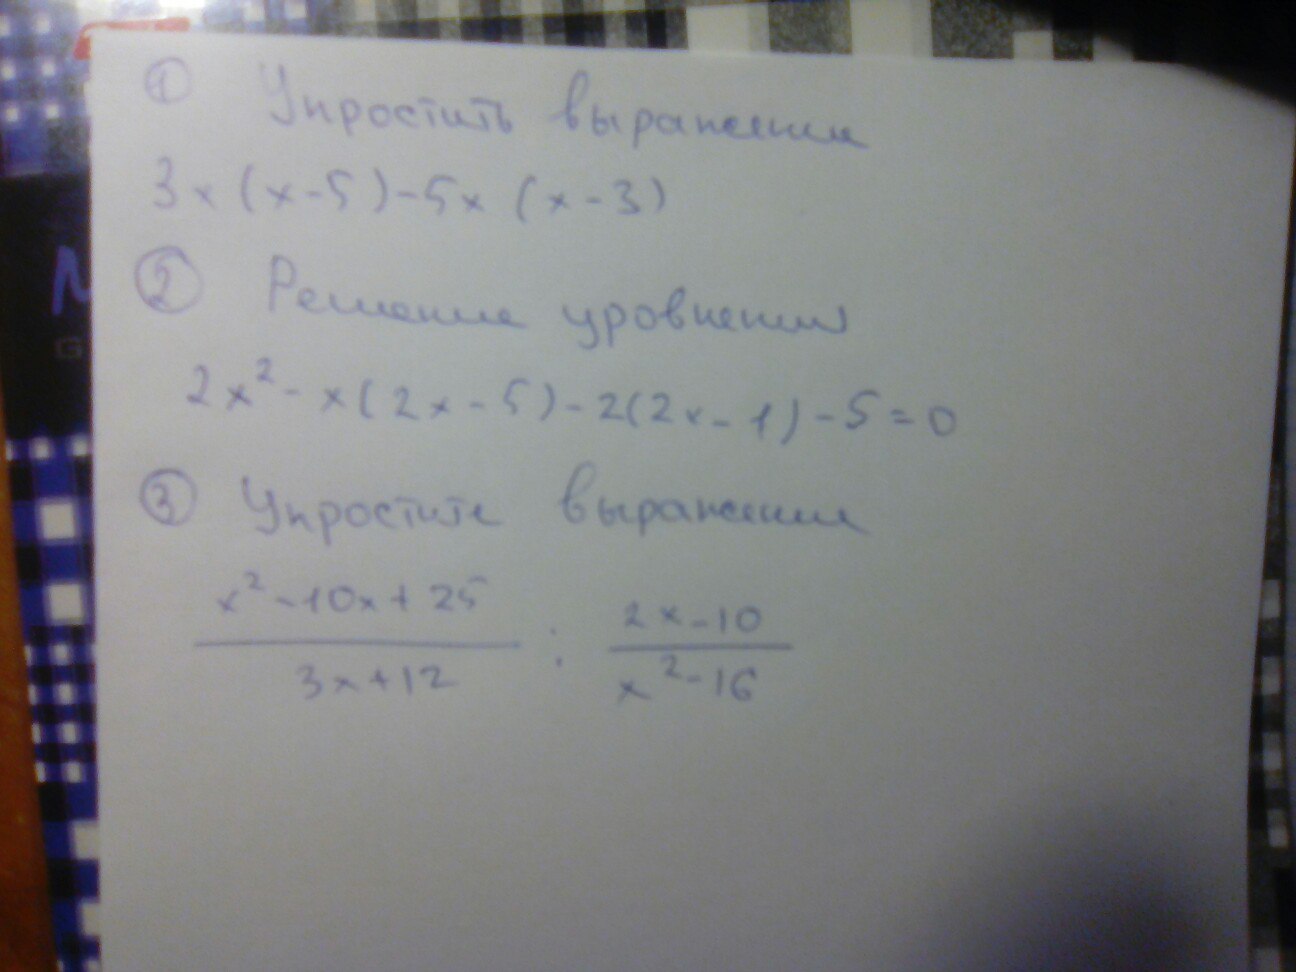 ① Упростить выражение
3x(x-5)-5x(x-3)
② Решение уровнения
2x²-x(2x-5)-2(2x-1)-5=0
③ Упростите выражение
x²-10x+25 / 3x+12 : 2x-10 / x²-16